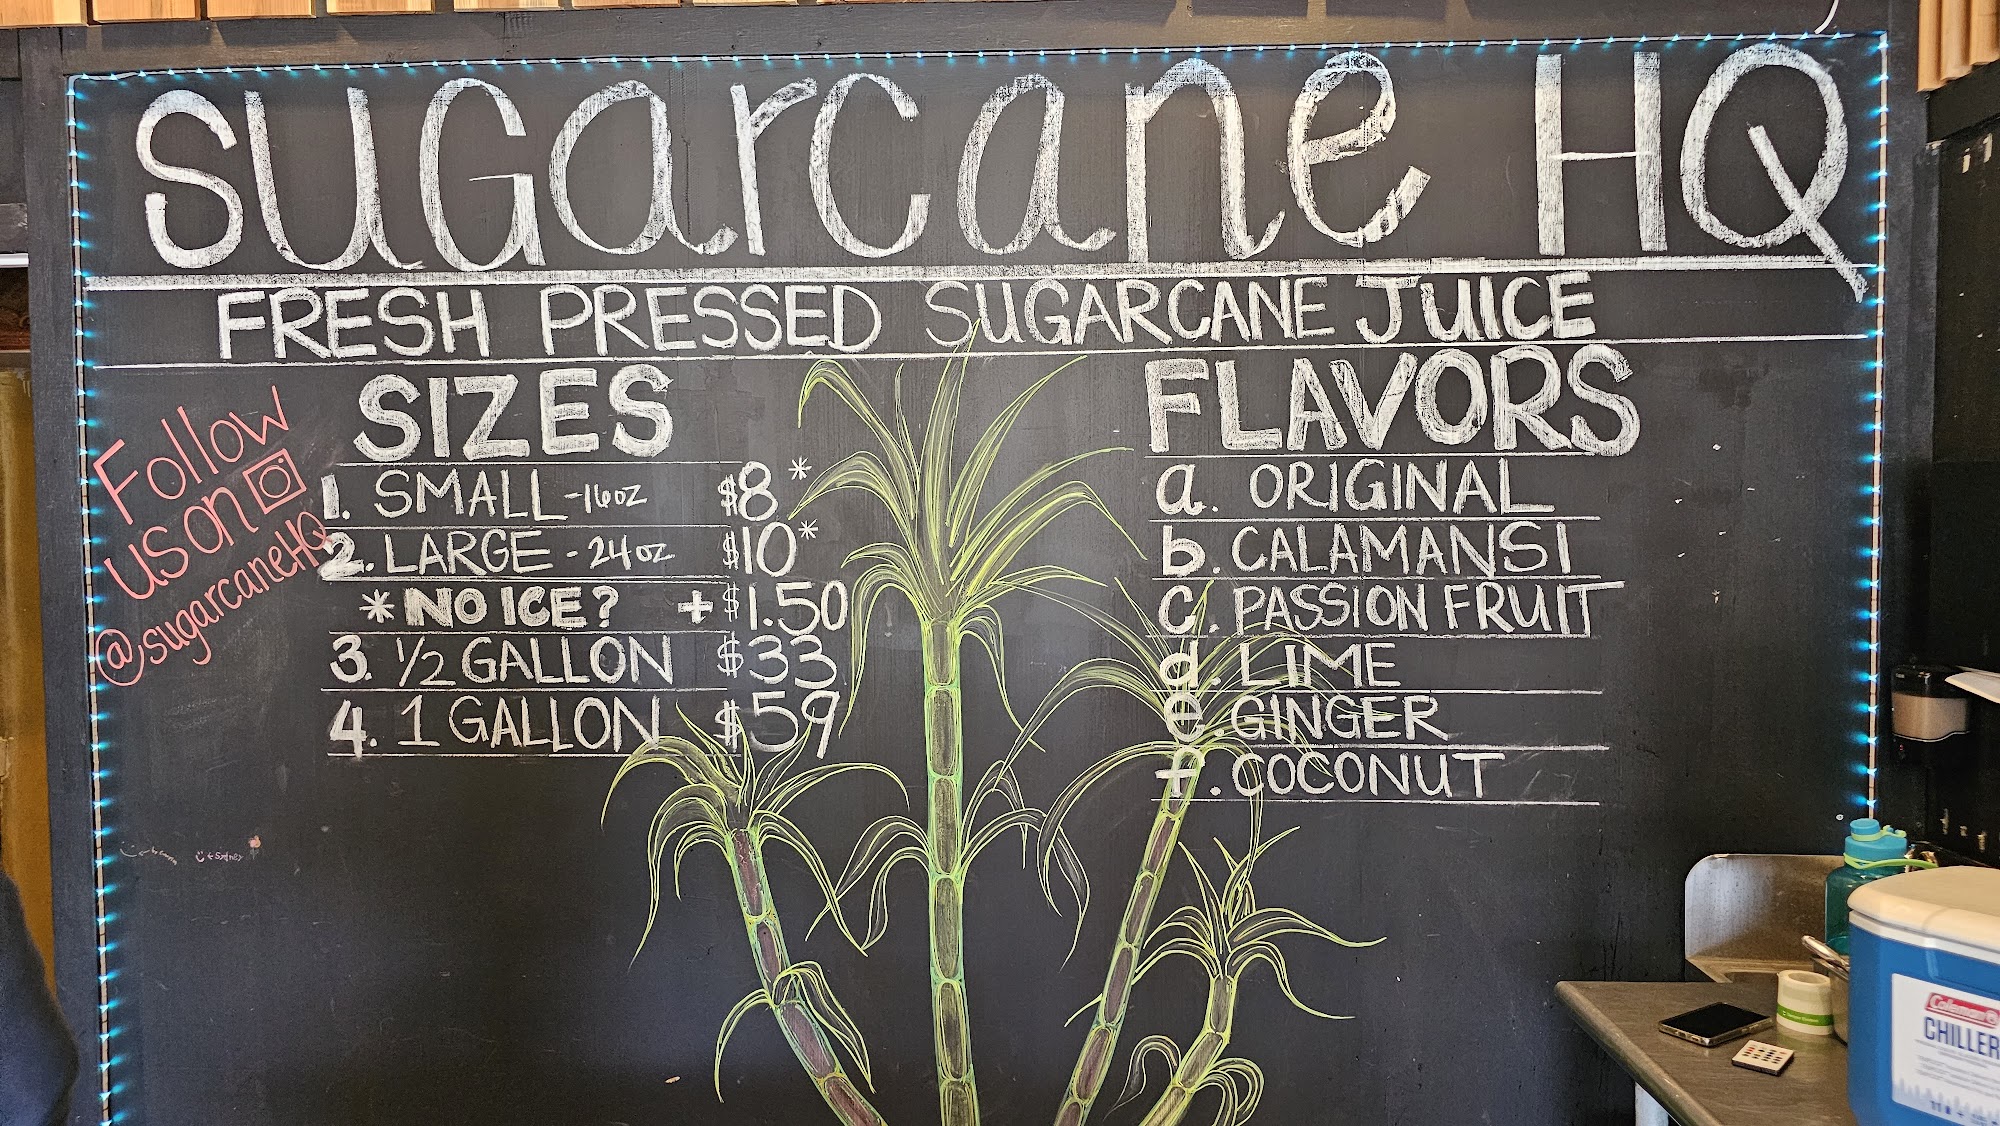 sugarcane HQ
FRESH PRESSED SUGARCANE JUICE
Follow
us on
@sugarcaneHQ
SIZES
1. SMALL -16oz $8*
2. LARGE - 24oz $10*
*NO ICE? +$1.50
3. 1/2 GALLON $33
4. 1 GALLON $59
FLAVORS
a. ORIGINAL
b. CALAMANSI
c. PASSION FRUIT
d. LIME
e. GINGER
f. COCONUT
Sydney
Coleman
CHILLER